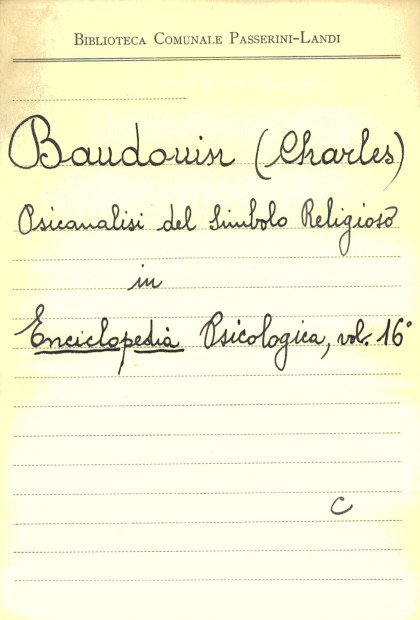 BIBLIOTECA COMUNALE PASSERINI-LANDI
Baudouin (Charles)
Psicanalisi del Simbolo Religioso
in
Enciclopedia Psicologica, vol. 16°
C